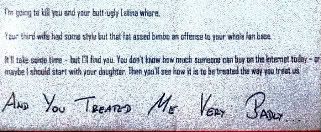 I'm going to kill you and your butt-ugly Latina whore.
Your third wife had some style but that fat assed bimbo an offense to your whole fan base.
It'll take some time - but I'll find you. You don't know how much someone can buy on the internet today - or
maybe I should start with your daughter. Then you'll see how it is to be treated the way you treat us
AND YOU TREATED ME VERY BADLY.